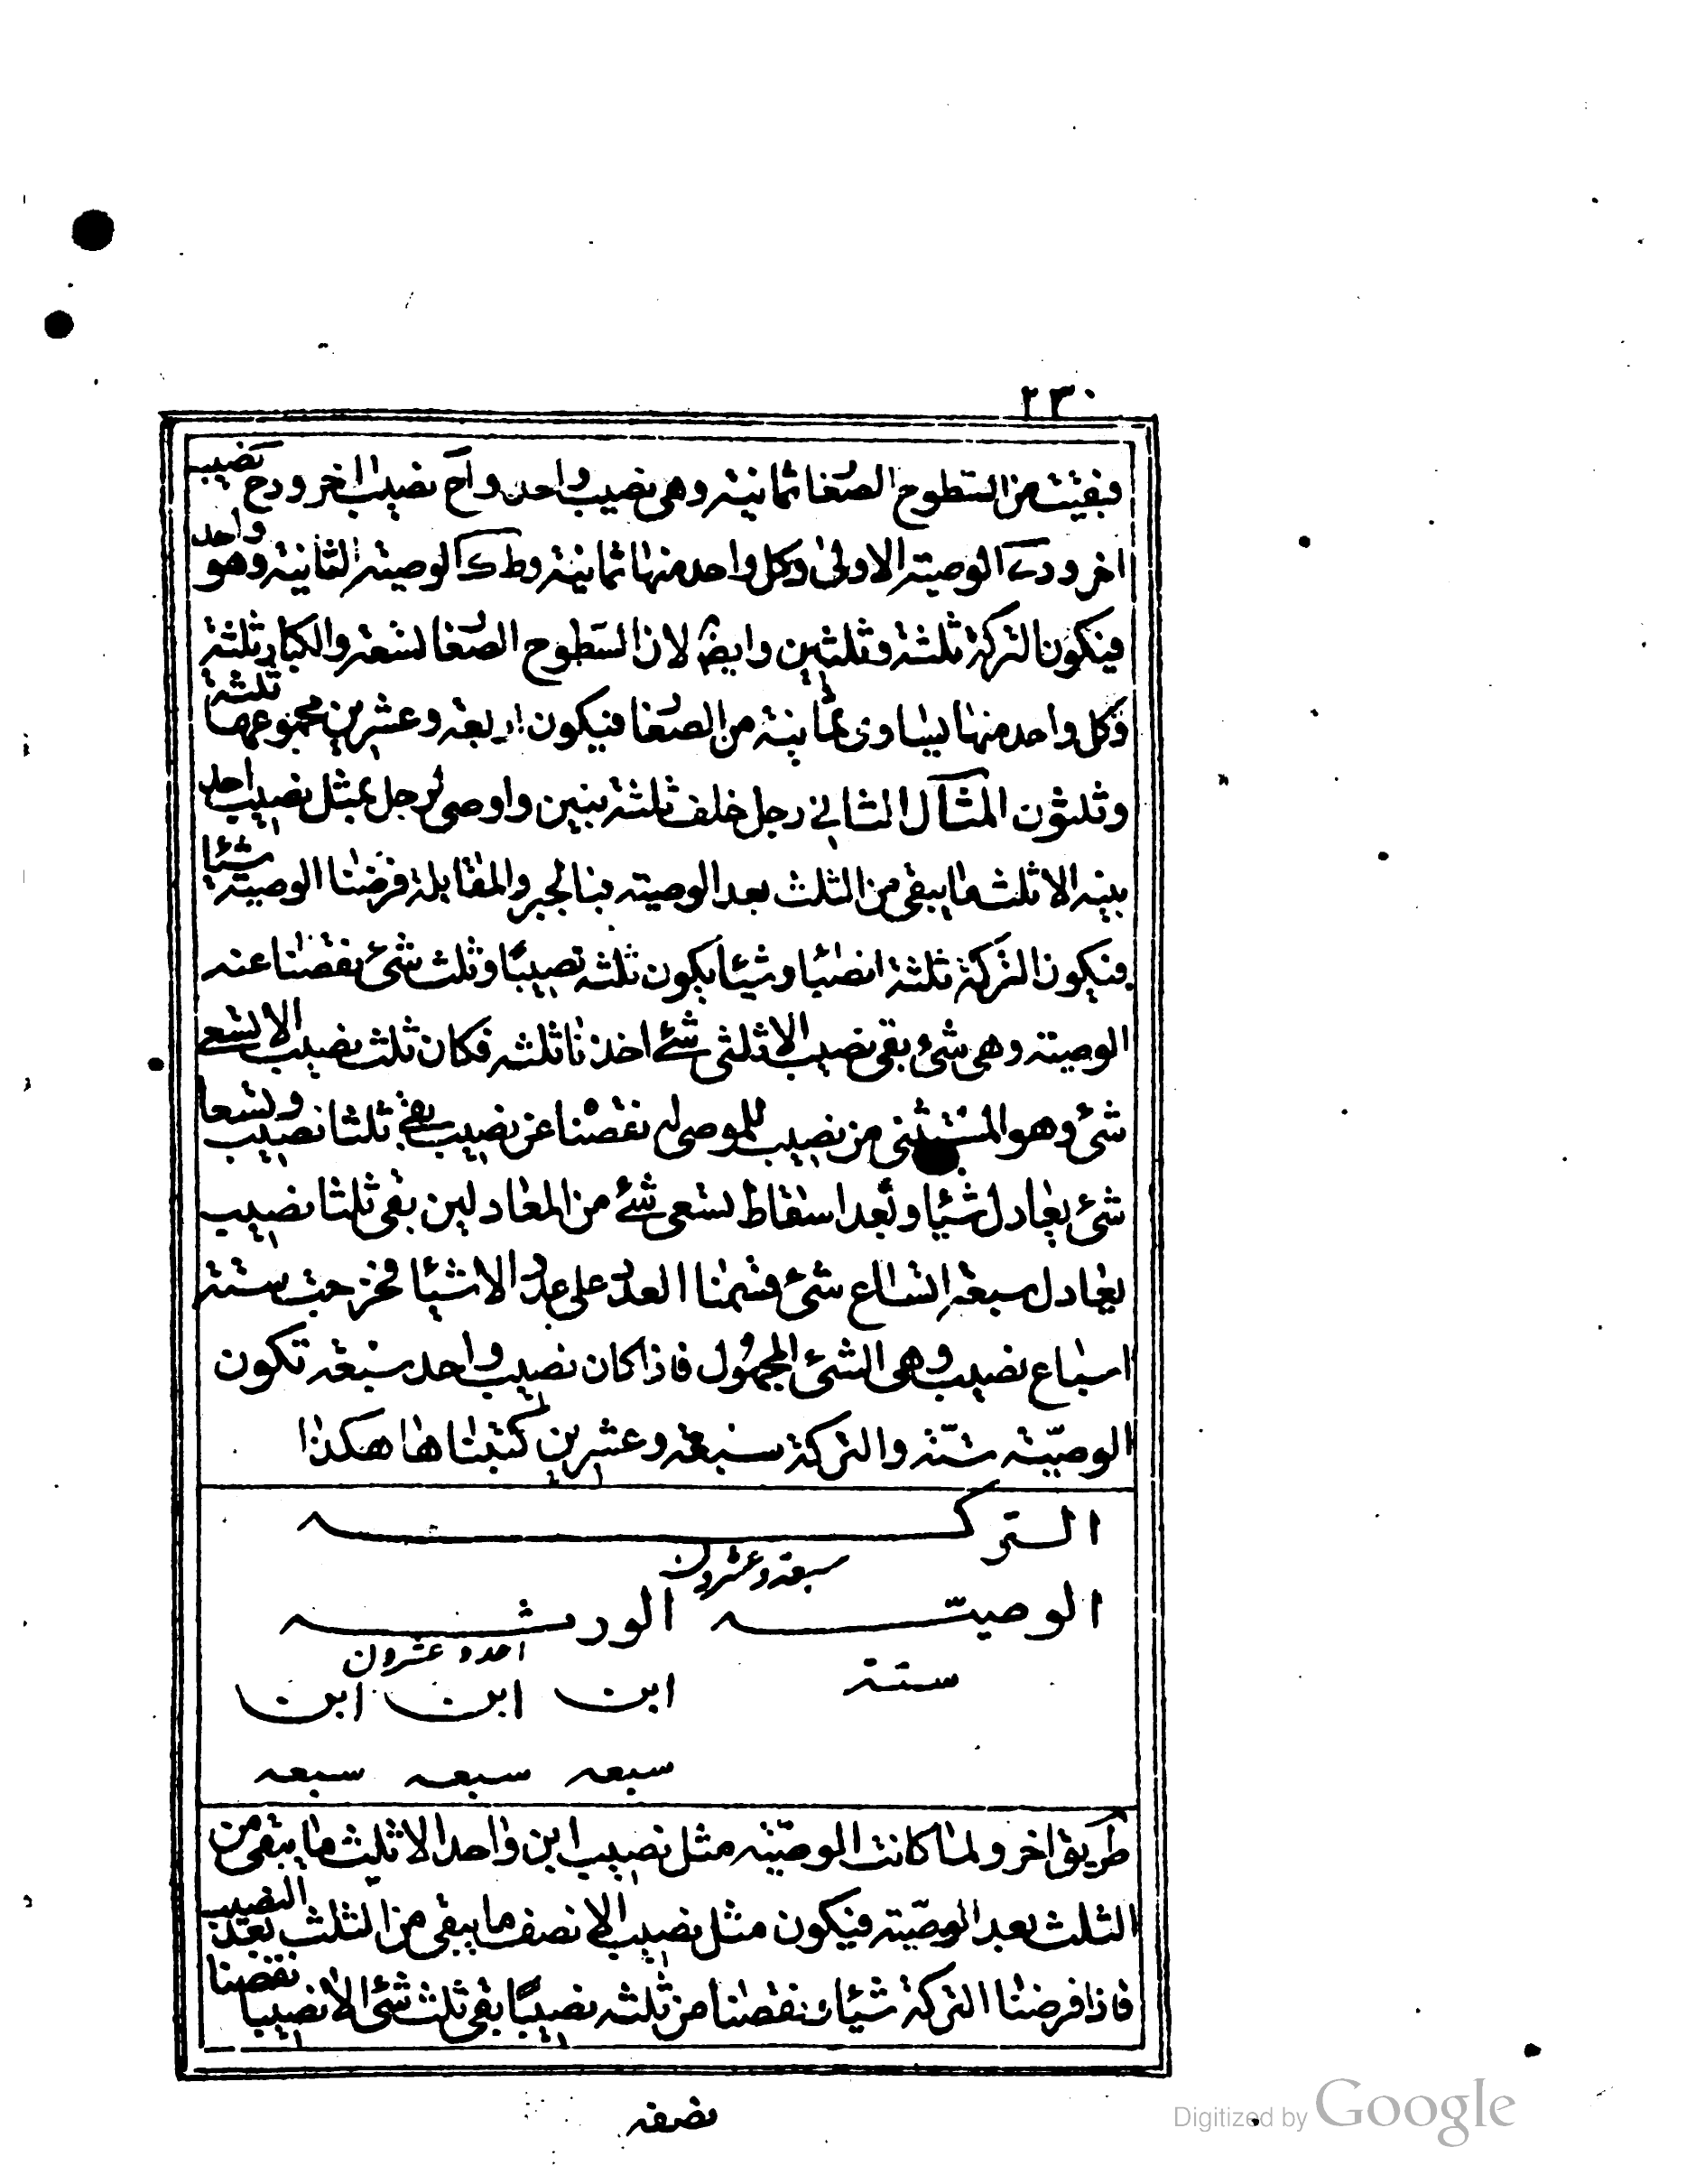 ٢٣٠
فبقيت من السطوح الصغا ثمانية وهى نصيب واحد و اح نصيب اخر و دح نصيب
اخر و دى الوصية الاولى وكل واحد منها ثمانية و ط ك الوصية الثانية وهو واحد
فيكون التركة ثلثة وثلثين وايضا لان السطوح الصغا لتسعة والكبار ثلثة
وكل واحد منها يساوى ثمانية من الصغا فيكون اربعة وعشرين مجموعها ثلثة
وثلثون المثال الثانى رجل خلف ثلثة بنين واوصى لرجل بمثل نصيب احد
بنيه الا ثلث ما يبقى من الثلث بعد الوصية فبالجبر والمقابلة فرضنا الوصية شيئا
فيكون التركة ثلثة انصبا وشيئا يكون ثلثه نصيبا وثلث شئ نقصنا عنه
الوصية وهى شئ بقى نصيب الا ثلثى شئ اخذنا ثلثه فكان ثلث نصيب الا تسعى
شئ وهو المستثنى من نصيب للموصى له نقصناه عن نصيب بقى ثلثا نصيب وتسعا
شئ يعادل شيئا وبعد اسقاط تسعى شئ من المعادلين بقى ثلثا نصيب
يعادل سبعة اتساع شئ قسمنا العدد على عدد الاشيا فخرجت ستة
اسباع نصيب وهى الشئ المجهول فاذا كان نصيب واحد سبعة تكون
الوصية ستة والتركة سبعة وعشرين كتبناها هكذا
التركه
سبعة وعشرون
الوصيه الورثه
احد وعشرون
ستة
ابن ابن ابن
سبعه سبعه سبعه
طريق اخر ولما كانت الوصية مثل نصيب ابن واحد الا ثلث ما يبقى من
الثلث بعد الوصية فيكون مثل نصيب الا نصف ما يبقى من الثلث بعد النصيب
فاذا فرضنا التركة شيئا ونقصنا من ثلثه نصيبا بقى ثلث شئ الا نصيبا نقصنا
نصفه
Digitized by Google